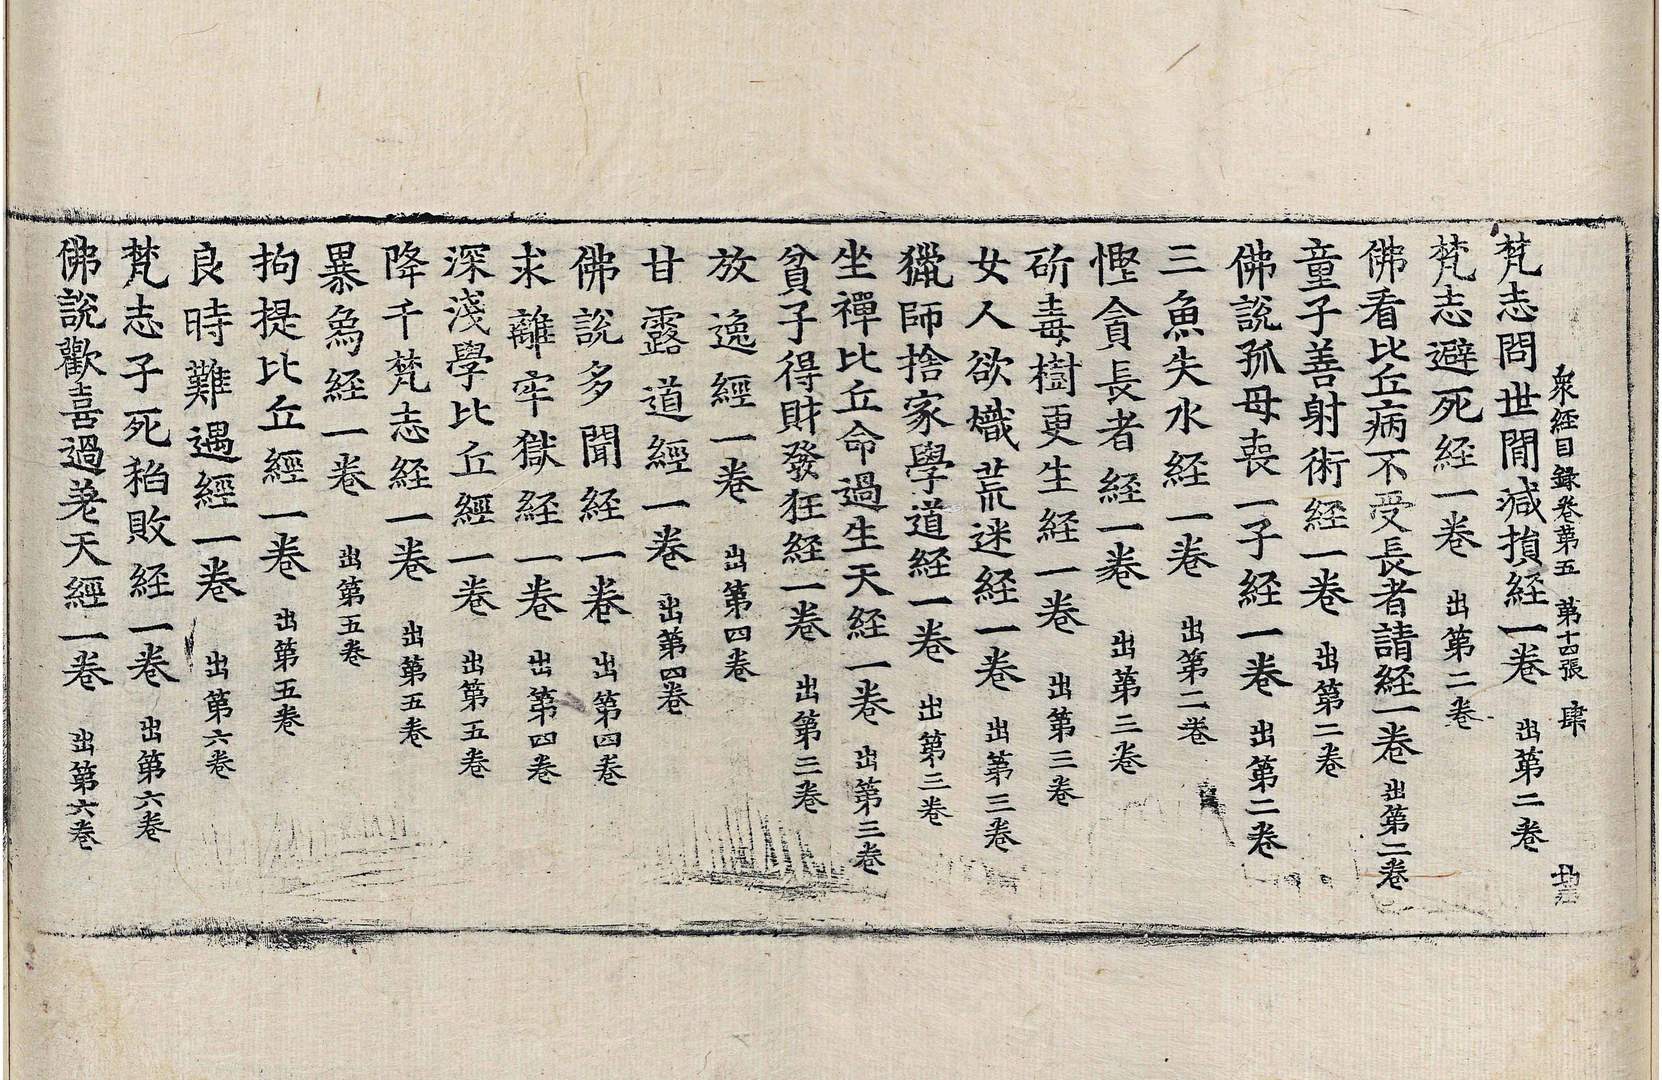 衆經目録卷第五　第十四張　肆
梵志問世間減損経一卷　出第二卷
梵志避死経一卷　出第二卷
佛看比丘病不受長者請経一卷　出第二卷
童子善射術経一卷　出第二卷
佛說孤母喪一子経一卷　出第二卷
三魚失水経一卷　出第二卷
慳貪長者経一卷　出第三卷
斫毒樹更生経一卷　出第三卷
女人欲熾荒迷経一卷　出第三卷
獵師捨家學道経一卷　出第三卷
坐禪比丘命過生天経一卷　出第三卷
貧子得財發狂経一卷　出第三卷
放逸經一卷　出第四卷
甘露道經一卷　出第四卷
佛說多聞經一卷　出第四卷
求離牢獄経一卷　出第四卷
深淺學比丘經一卷　出第五卷
降千梵志経一卷　出第五卷
暴象経一卷　出第五卷
拘提比丘經一卷　出第五卷
良時難遇經一卷　出第六卷
梵志子死稻敗経一卷　出第六卷
佛說歡喜過差天經一卷　出第六卷